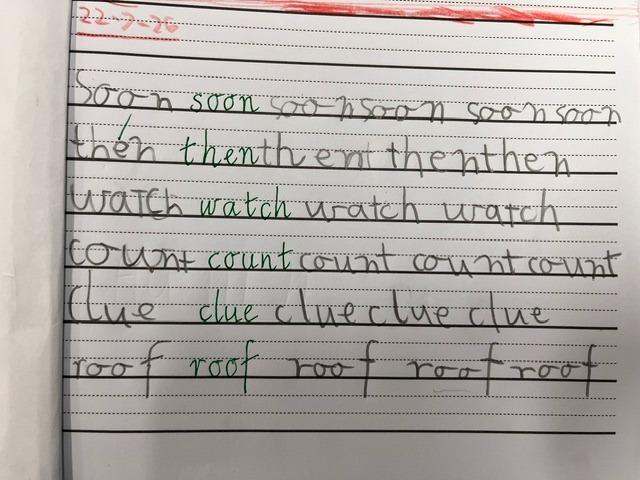 22-5-26
Soon soon soon soon soon soon
then then then then then
watch watch watch watch
count count count count count
Clue clue clue clue clue
roof roof roof roof roof